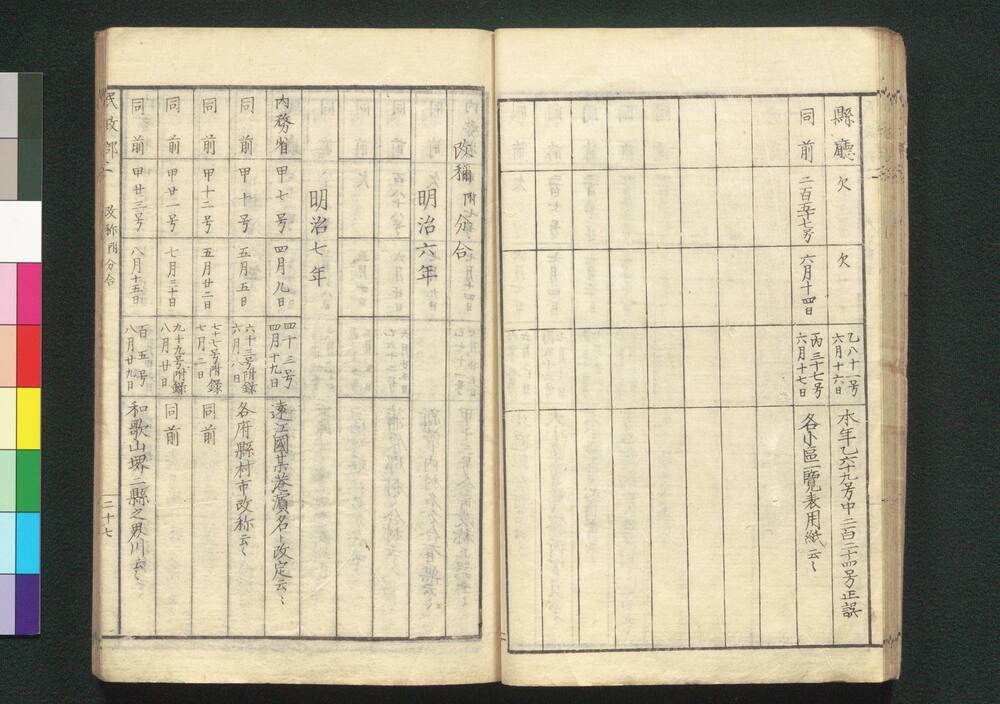 縣廳 欠 欠 乙八十一号 六月十六日 本年乙六十九号中二百二十四号正誤
同前 二百五十七号 六月十四日 丙三十七号 六月十七日 各小區一覽表用紙云々
改稱 附 分合
明治六年
明治七年
内務省 甲七号 四月九日 四十三号 四月十九日 遠江國某巷濱名ト改定云々
同前 甲十号 五月五日 六十三号附録 六月八日 各府縣村市改称云々
同前 甲十二号 五月廿二日 七十七号附録 七月二日 同前
同前 甲廿一号 七月三十日 九十九号附録 八月廿日 同前
同前 甲廿三号 八月十五日 百五号 八月廿九日 和歌山堺二縣之界川云々
民政部 改称附分合 二十七